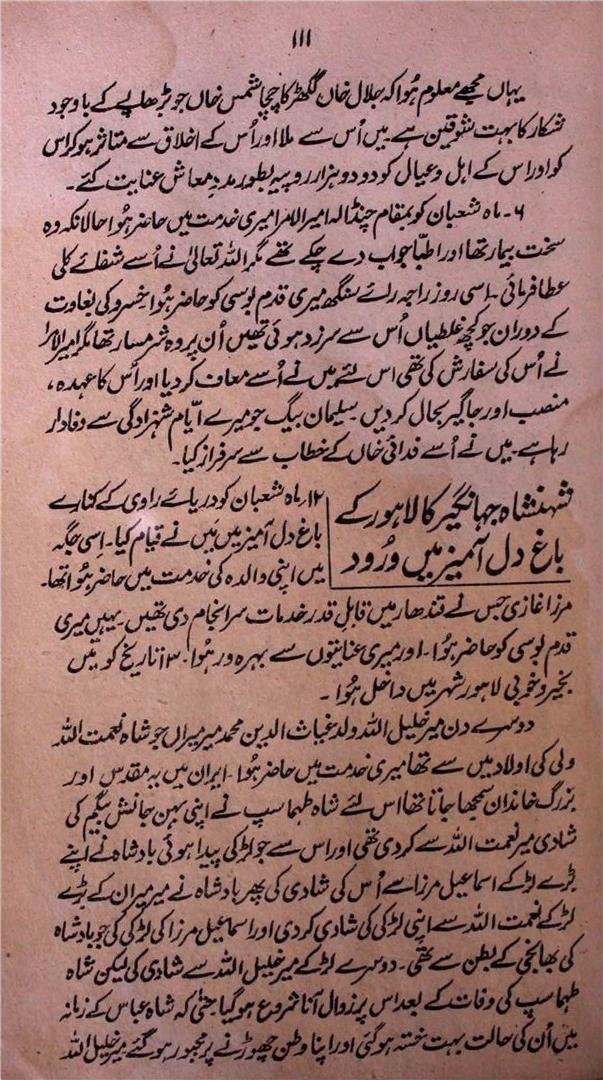 ۱۱۱
یہاں مجھے معلوم ہُوا کہ جلال خاں گکھڑ کا چچا شمس خاں جو بڑھاپے کے باوجود
شکار کا بہت شوقین ہے۔ میں اُس سے ملا اور اُس کے اخلاق سے متاثر ہو کر اس
کو اور اس کے اہل و عیال کو دو دو ہزار روپیہ بطور مددِ معاش عنایت کئے۔
۶۔ ماہ شعبان کو بمقام چنڈالہ امیر الامرا میری خدمت میں حاضر ہُوا حالانکہ وہ
سخت بیمار تھا اور اطبّا جواب دے چکے تھے مگر اللہ تعالیٰ نے اُسے شفائے کلی
عطا فرمائی۔ اسی روز راجہ رائے سنگھ میری قدم بوسی کو حاضر ہُوا۔ خسرو کی بغاوت
کے دوران جو کچھ غلطیاں اُس سے سرزد ہوئی تھیں اُن پر وہ شرمسار تھا مگر امیر الامرا
نے اُس کی سفارش کی تھی اس لئے میں نے اُسے معاف کر دیا اور اُس کا عہدہ،
منصب اور جاگیر بحال کر دیں۔ سلیمان بیگ جو میرے ایّام شہزادگی سے وفادار
رہا ہے۔ میں نے اُسے فدائی خاں کے خطاب سے سرفراز کیا۔
شہنشاہ جہانگیر کا لاہور کے
باغ دل آمیز میں وُرود
۱۲۔ ماہ شعبان کو دریائے راوی کے کنارے
باغ دل آمیز میں مَیں نے قیام کیا۔ اِسی جگہ
میں اپنی والدہ کی خدمت میں حاضر ہُوا تھا۔
مرزا غازی جس نے قندھار میں قابلِ قدر خدمات سرانجام دی تھیں۔ یہیں میری
قدم بوسی کو حاضر ہُوا۔ اور میری عنایتوں سے بہرہ ور ہُوا۔ ۱۳ تاریخ کو میں
بخیر و خوبی لاہور شہر میں داخل ہُوا۔
دوسرے دن میر خلیل اللہ ولد غیاث الدین محمد میر میراں جو شاہ نعمت اللہ
ولی کی اولاد میں سے تھا میری خدمت میں حاضر ہُوا۔ ایران میں یہ مقدس اور
بزرگ خاندان سمجھا جاتا تھا اس لئے شاہ طہماسپ نے اپنی بہن جانش بیگم کی
شادی میر نعمت اللہ سے کر دی تھی اور اس سے جو لڑکی پیدا ہوئی بادشاہ نے اپنے
بڑے لڑکے اسماعیل مرزا سے اُس کی شادی کی پھر بادشاہ نے میر میران کے بڑے
لڑکے نعمت اللہ سے اپنی لڑکی کی شادی کر دی اور اسماعیل مرزا کی لڑکی کی جو بادشاہ
کی بھانجی کے بطن سے تھی۔ دوسرے لڑکے میر خلیل اللہ سے شادی کی لیکن شاہ
طہماسپ کی وفات کے بعد اس پر زوال آنا شروع ہو گیا۔ حتیٰ کہ شاہ عباس کے زمانہ
میں اُن کی حالت بہت خستہ ہو گئی اور اپنا وطن چھوڑنے پر مجبور ہو گئے میر خلیل اللہ